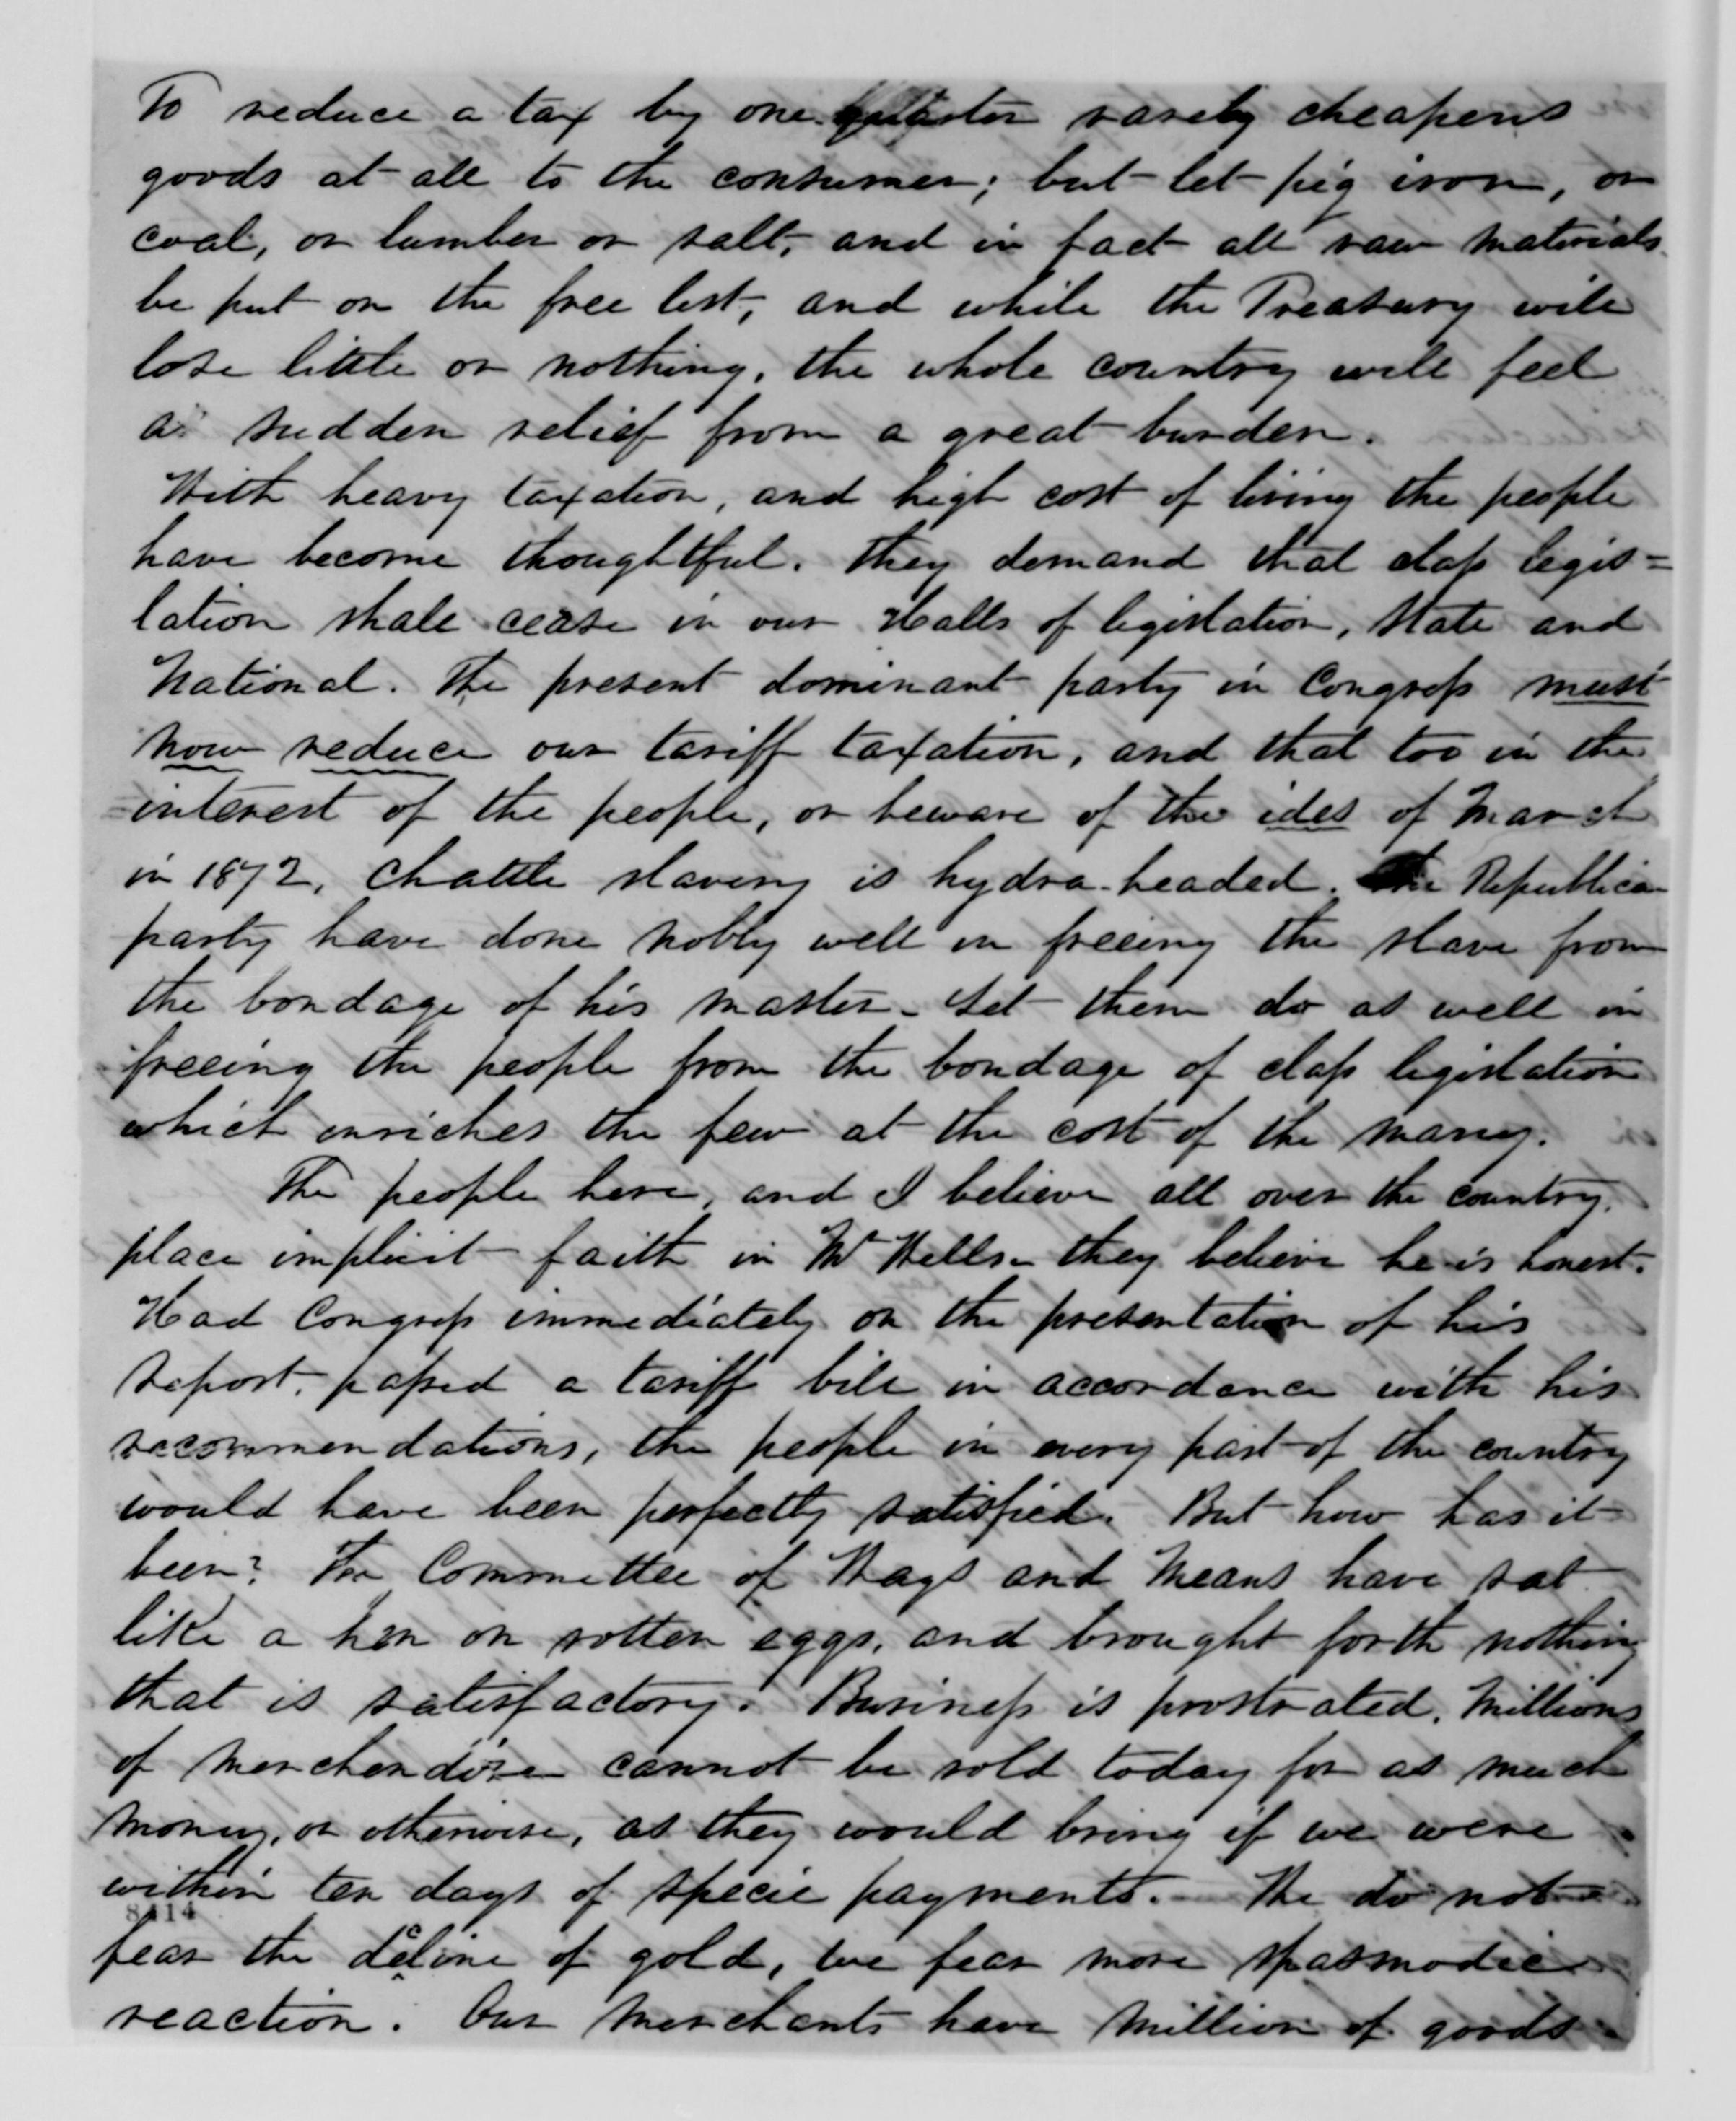 To reduce a tax by one quarter rarely cheapens
goods at all to the consumer; but let pig iron, or
coal, or lumber or salt, and in fact all raw materials
be put on the free list, and while the Treasury will
lose little or nothing, the whole country will feel
a sudden relief from a great burden.
With heavy taxation, and high cost of living the people
have become thoughtful. They demand that class legis=
lation shall cease in our Halls of legislation, State and
National. The present dominant party in Congress must
now reduce our tariff taxation, and that too in the
interest of the people, or beware of the ides of March
in 1872. Chattle slavery is hydra-headed. The Republican
party have done nobly well in freeing the slave from
the bondage of his master. Let them do as well in
freeing the people from the bondage of class legislation
which enriches the few at the cost of the many.
The people here, and I believe all over the country,
place implicit faith in Mr Wells – they believe he is honest.
Had Congress immediately on the presentation of his
report, passed a tariff bill in accordance with his
recommendations, the people in every part of the country
would have been perfectly satisfied. But how has it
been? The Committee of Ways and Means have sat
like a hen on rotten eggs, and brought forth nothing
that is satisfactory. Business is prostrated. Millions
of merchandise cannot be sold today for as much
money, or otherwise, as they would bring if we were
within ten days of specie payments. – We do not
8414
fear the decline of gold, we fear more spasmodic
reaction. Our merchants have million of goods